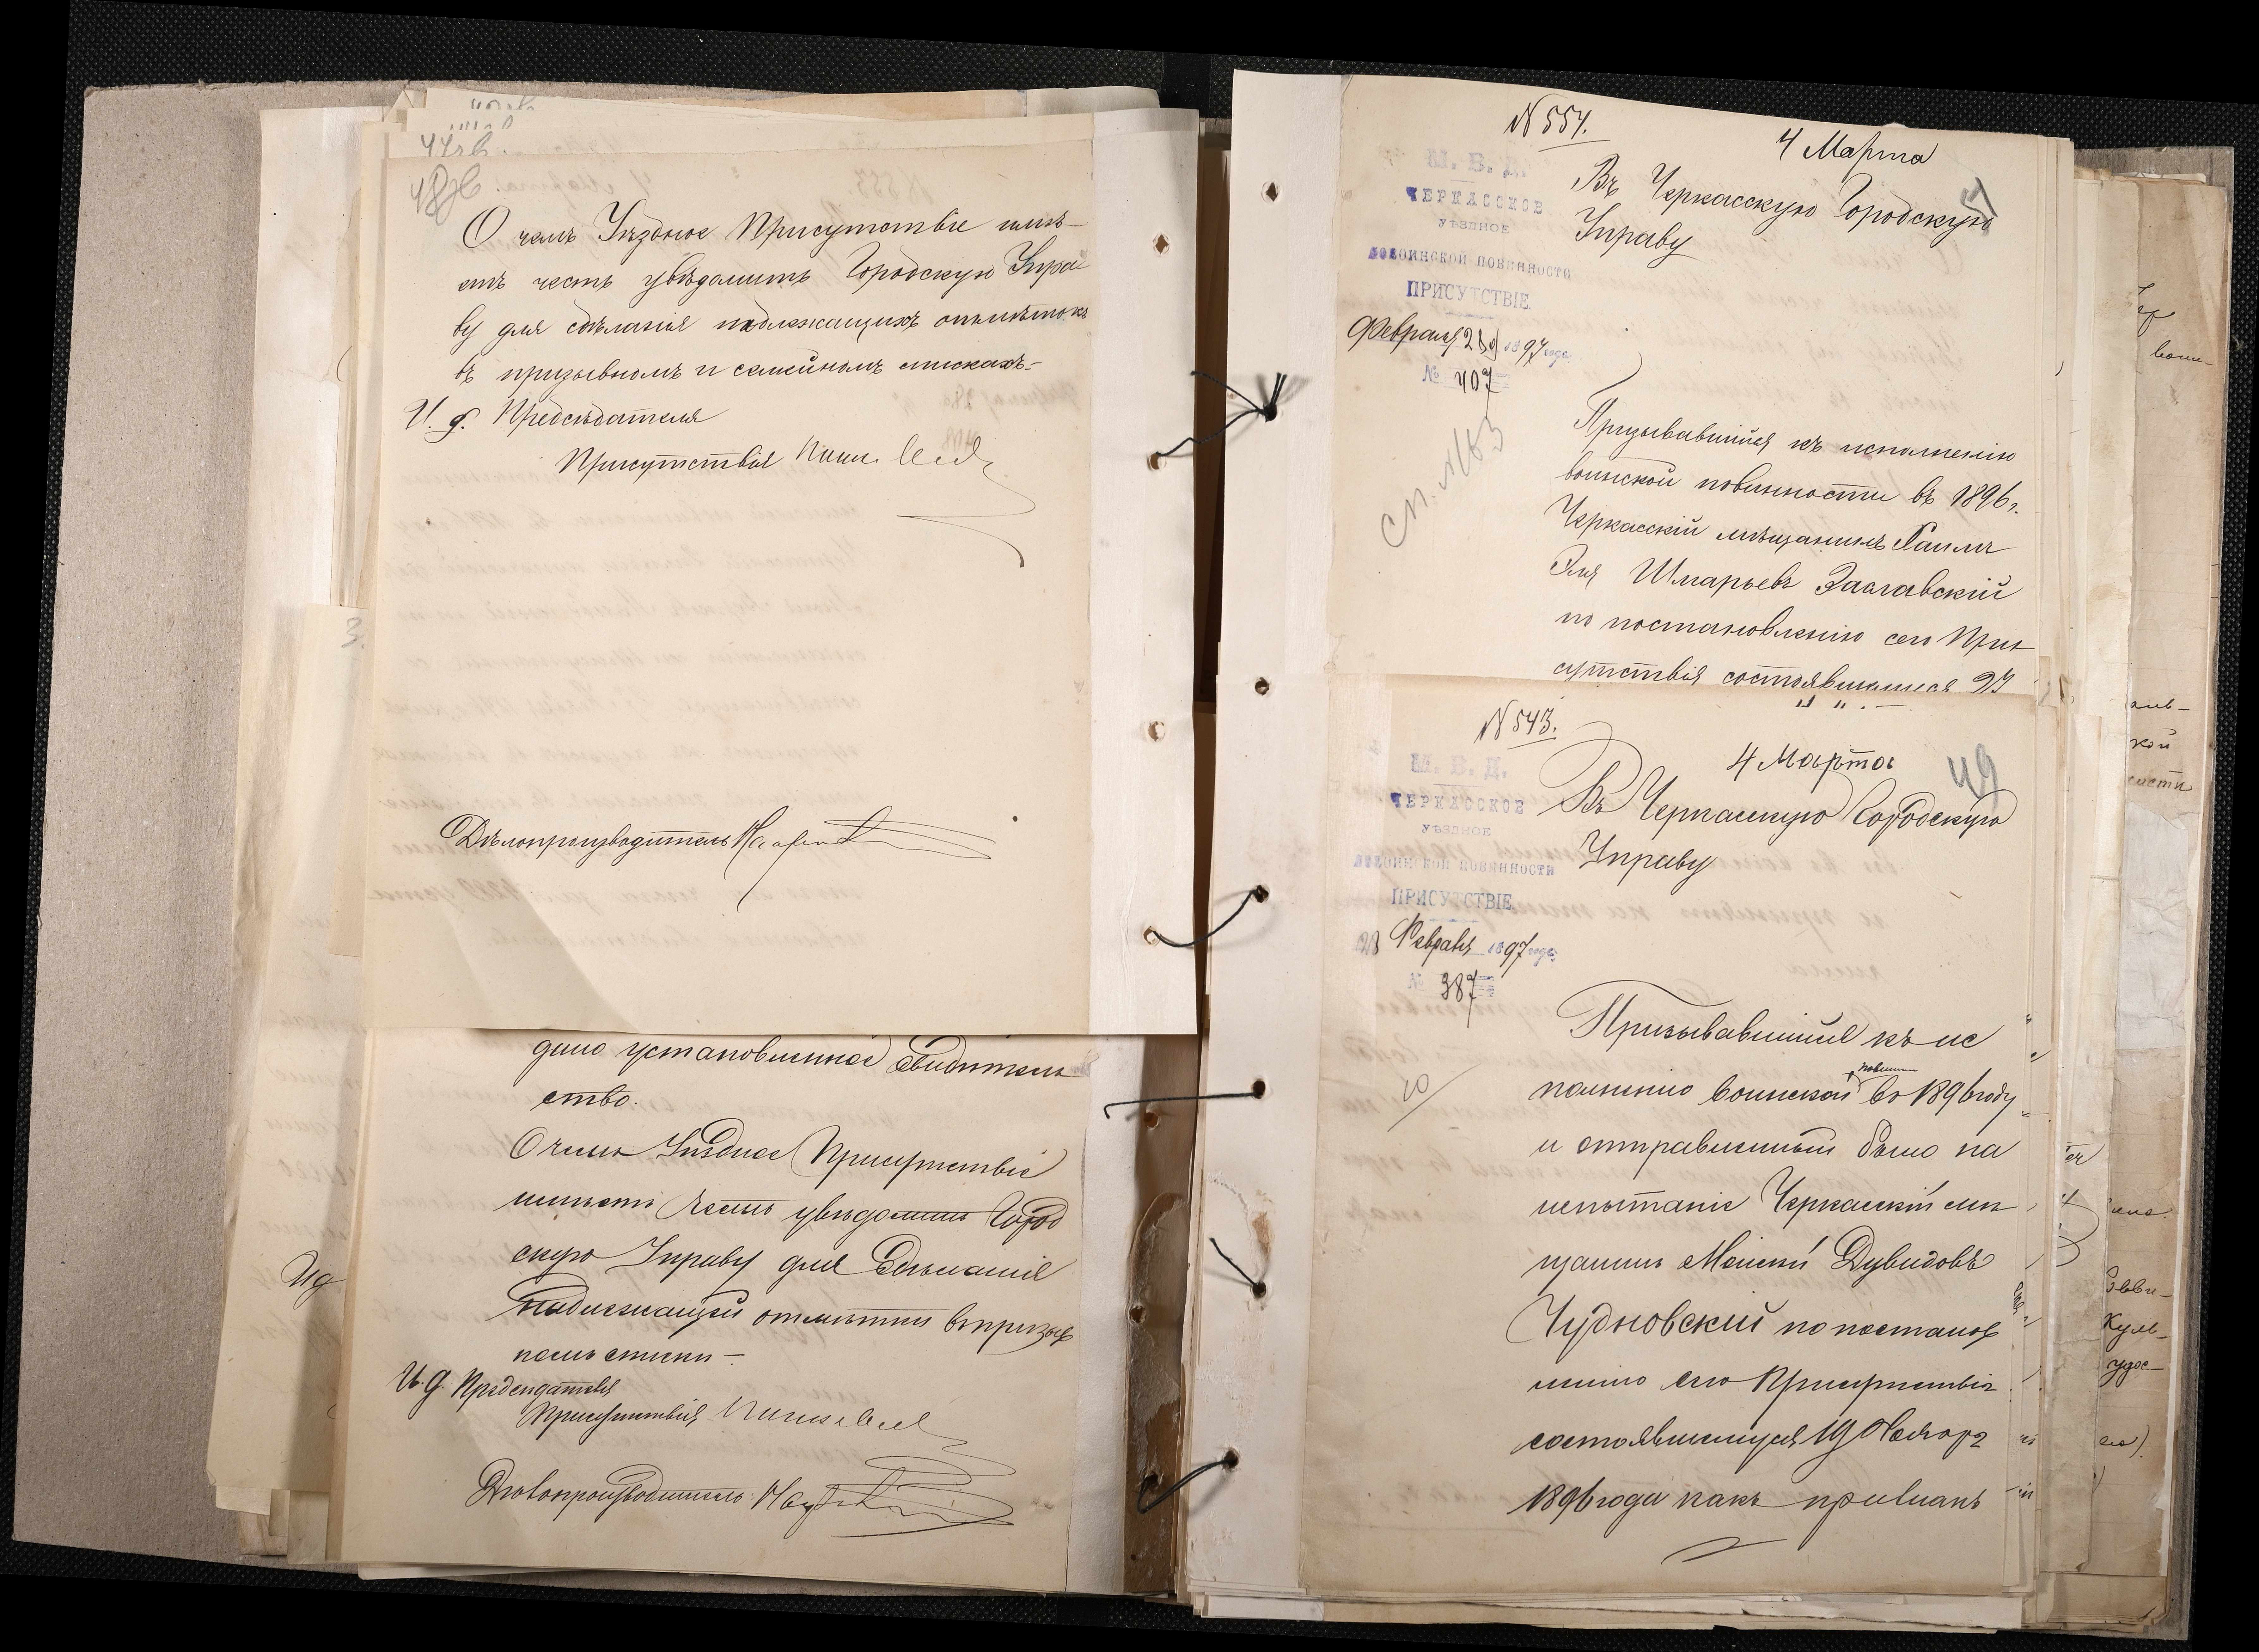 48об.
О чемъ Уѣздное Присутствіе имѣ-
етъ честь увѣдомить Городскую Упра
ву для сдѣланія подлежащихъ отмѣтокъ
въ призывномъ и семейномъ спискахъ.-
И. д. Предсѣдателя
Присутствія
Дѣлопроизводитель
дано установленное свидѣтель
ство.
О чемъ Уѣздное Присутствіе
имѣетъ честь увѣдомить Город
скую Управу для сдѣланія
надлежащей отмѣтки въ призыв
номъ списки-
И. д. Предсѣдателя
Присутствія
Дѣлопроизводитель
N 554.
4 Марта
М. В. Д.
ЧЕРКАССКОЕ
УѢЗДНОЕ
ПО ВОИНСКОЙ ПОВИННОСТИ
ПРИСУТСТВІЕ.
Февраля 28 1897 года
№ 407
Въ Черкасскую Городскую
Управу
сп. №63
Призывавшійся къ исполненію
воинской повинности въ 1896 г.
Черкасскій мѣщанинъ Хаимъ
Эля Шмарьевъ Заславскій
по постановленію сего При
сутствія состоявшемуся 23
N 543.
4 Марта
49
М. В. Д.
ЧЕРКАССКОЕ
УѢЗДНОЕ
ПО ВОИНСКОЙ ПОВИННОСТИ
ПРИСУТСТВІЕ.
28 Февраля 1897 года
№ 387
Въ Черкасскую Городскую
Управу
Призывавшійся къ ис
полненію воинской повин въ 1896 году
и отправленный было на
испытаніе Черкасскій мѣ
щанинъ Мошко Дувидовъ
Чудновскій по постанов
ленію сего Присутствія
состоявшемуся 19 Ноября
1896 года какъ признанъ